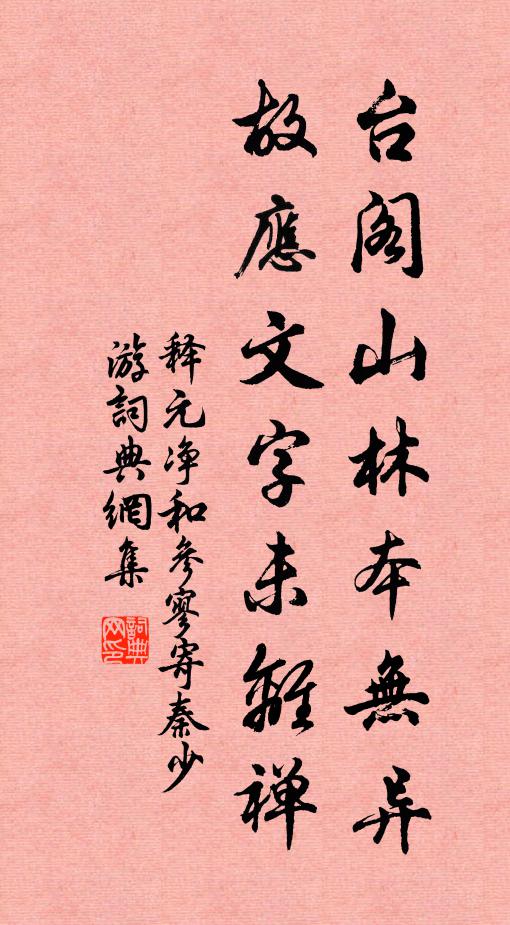 台阁山林本無异
故應文字未離禅
释元净和参寥寄秦少
游詞典網集
詞典网印